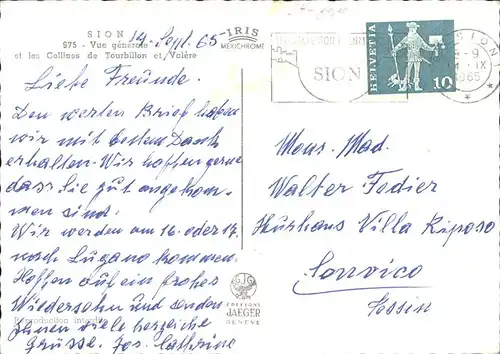 SION
975 - Vue générale
et les Collines de Tourbillon et Valère
IRIS
MEXICHROME
14. Sept. 65
Liebe Freunde.
Den werten Brief haben
wir mit bestem Dank
erhalten. Wir hoffen gerne
dass Sie gut angekom-
men sind.
Wir werden am 16. oder 17.
nach Lugano kommen.
Hoffen auf ein frohes
Wiedersehn und senden
Ihnen viele herzliche
Grüsse. Jos. Cathrine
Reproduction interdite
EDITIONS
JAEGER
GENÈVE
SION
HELVETIA
10
SION
-9
14. IX
1965
Mons. Mad.
Walter Fedier
Kurhaus Villa Riposo
Sonvico
Tessin